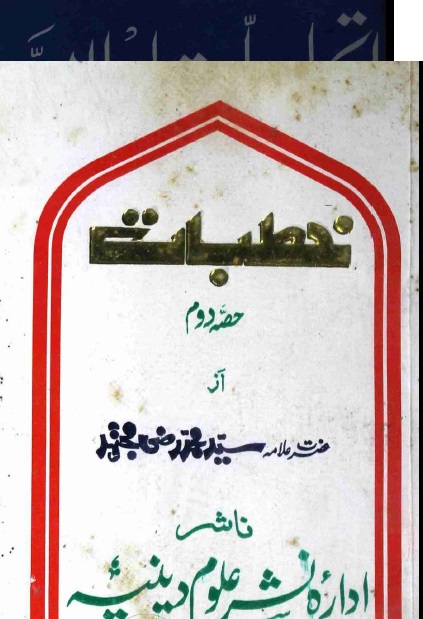 خطبات
حصّہ دوم
از
حضرت علامہ سیّد محمد رضی مجتہد
ناشر
ادارۂ نشر علوم دینیہ